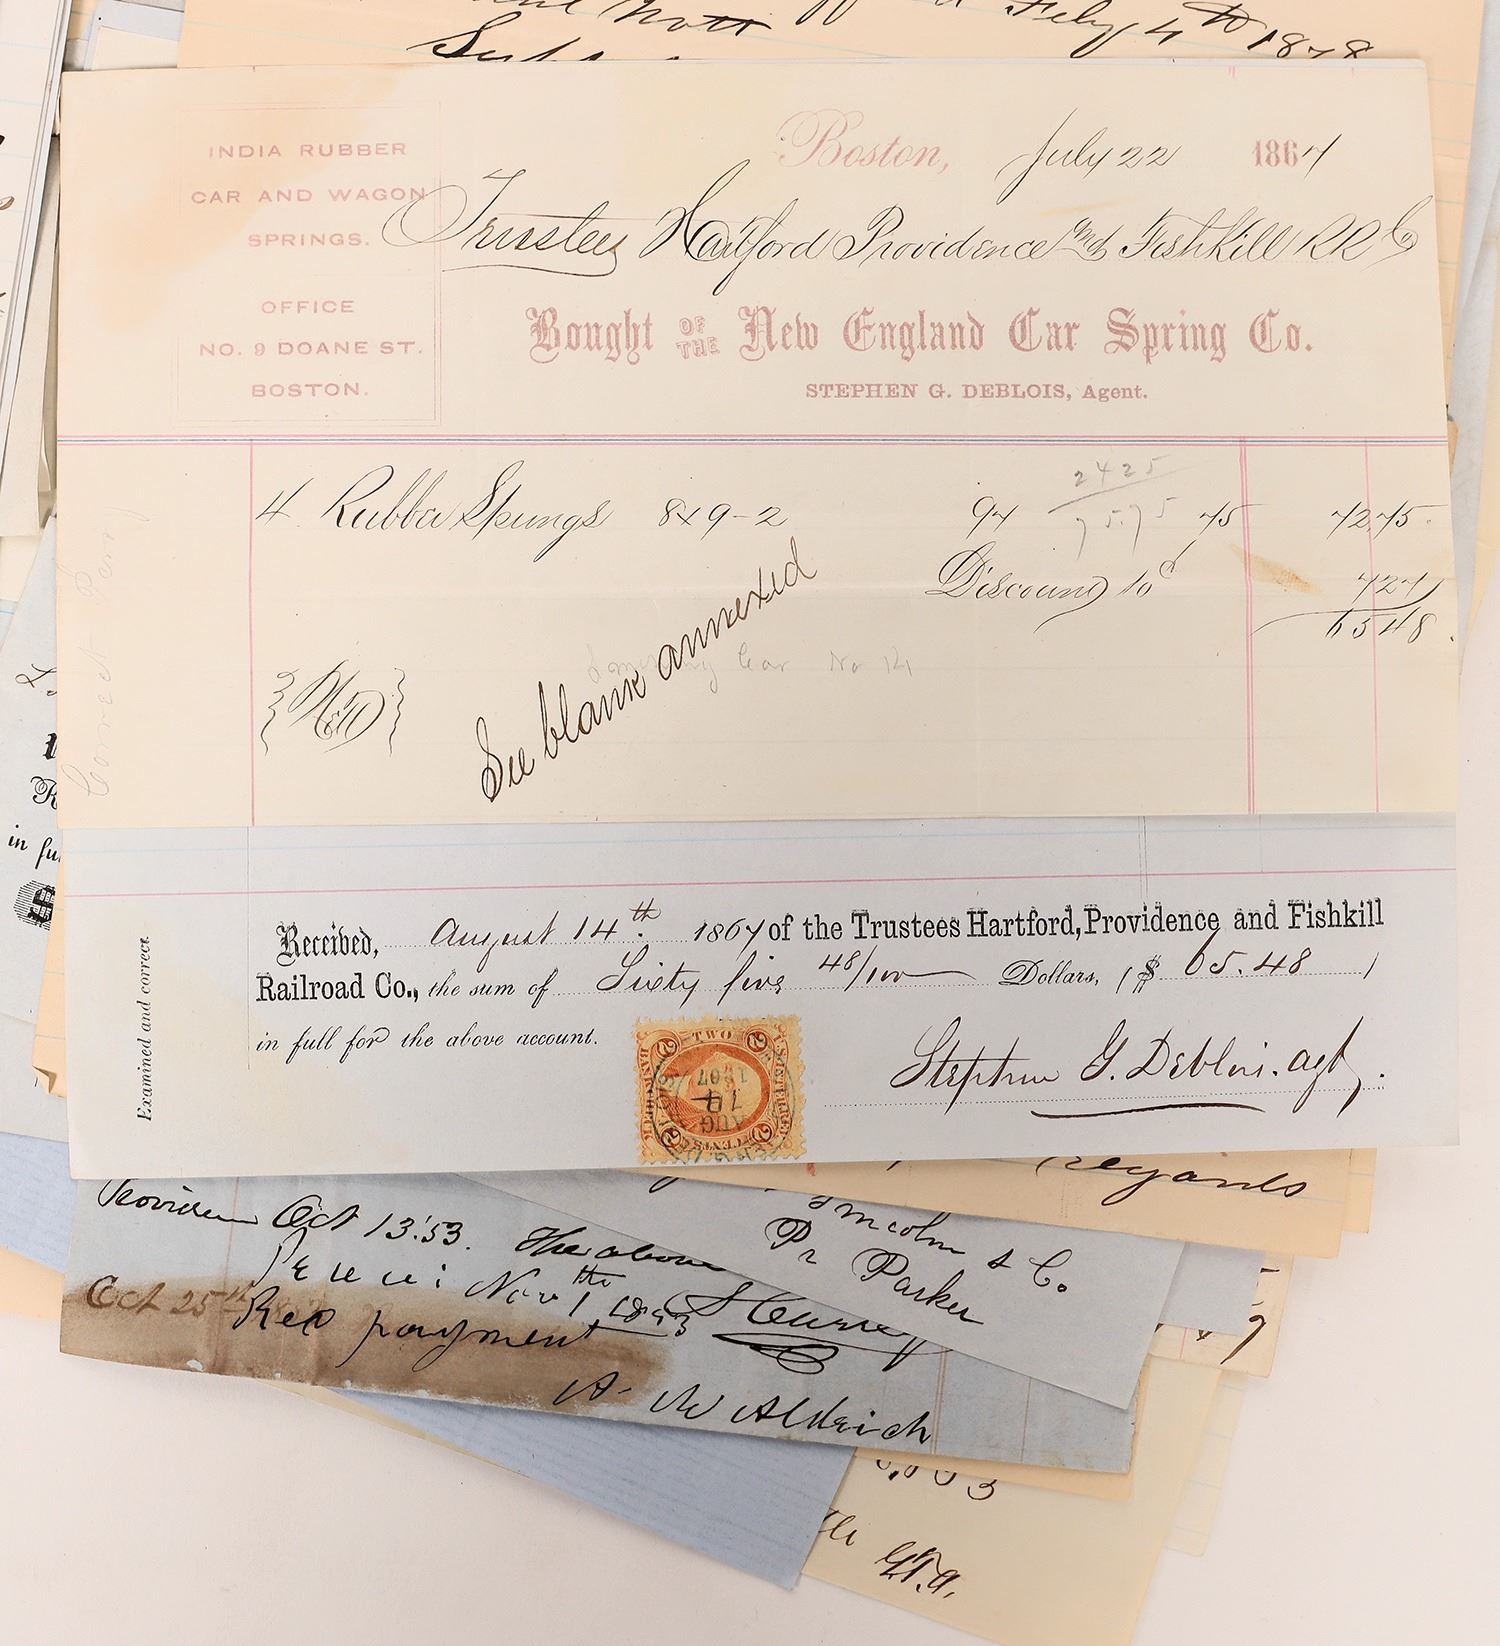 Feby 4th 1878
INDIA RUBBER
CAR AND WAGON
SPRINGS.
OFFICE
NO. 9 DOANE ST.
BOSTON.
Boston, July 22 1867
Trustees Hartford Providence and Fishkill RR Co
Bought OF THE New England Car Spring Co.
STEPHEN G. DEBLOIS, Agent.
2425
4 Rubber Springs 8x9-2 97 75.75 75 72 75
Discount 10 7 27
65 48
See blank annexed
Car No 14
Correct
Examined and correct
Received, August 14th. 1867 of the Trustees Hartford, Providence and Fishkill
Railroad Co., the sum of Sixty five 48/100 Dollars, ($ 65.48 )
in full for the above account.
TWO
U.S. INTER. REV.
BANK CHECK
CENTS
AUG
14
1867
Stephen G. Deblois. agt.
in fu
regards
Oct 13. 53. The above
Nov 1th 1853
Oct 25th Rec payment
A. W Aldrich
& Co.
Pr Parker
G.T.a.